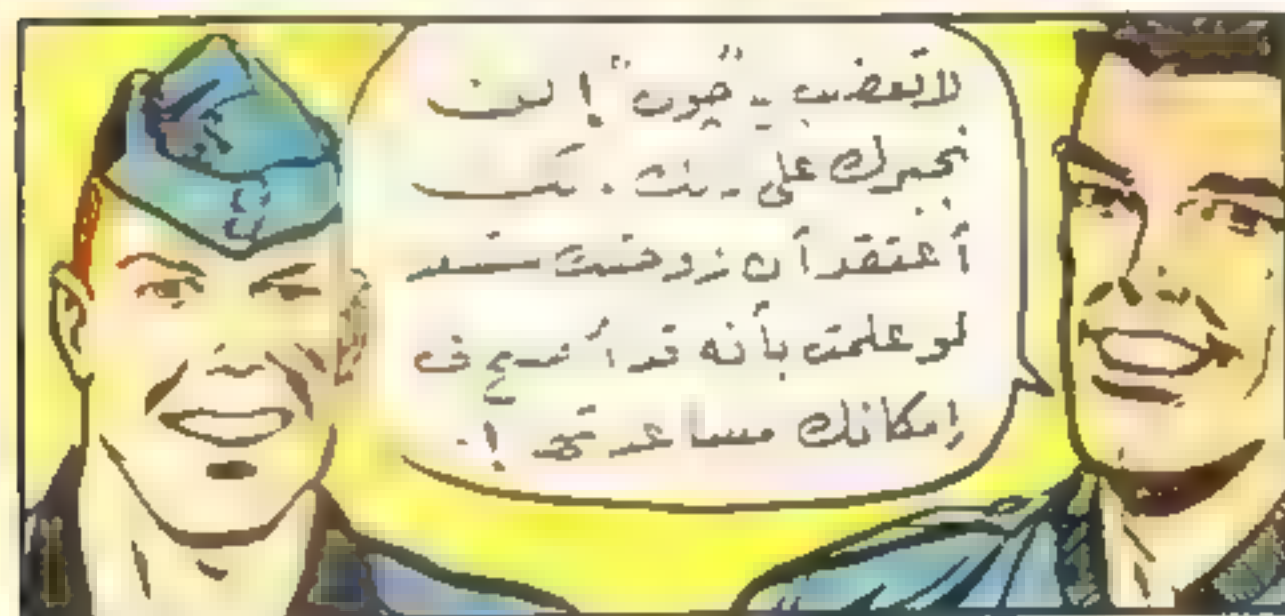 لا تغضب يا "جون" ! لن
نجبرك على
أعتقد أن زوجتك
لو علمت بأنه قد أصبح في
إمكانك مساعدتها !.